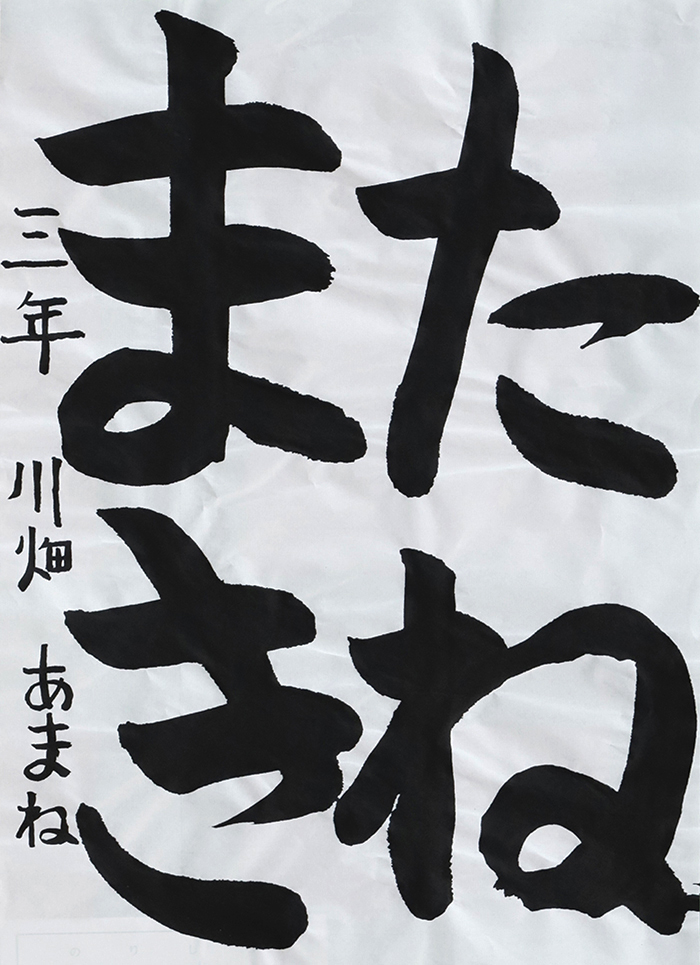 たね
まき
三年 川畑 あまね